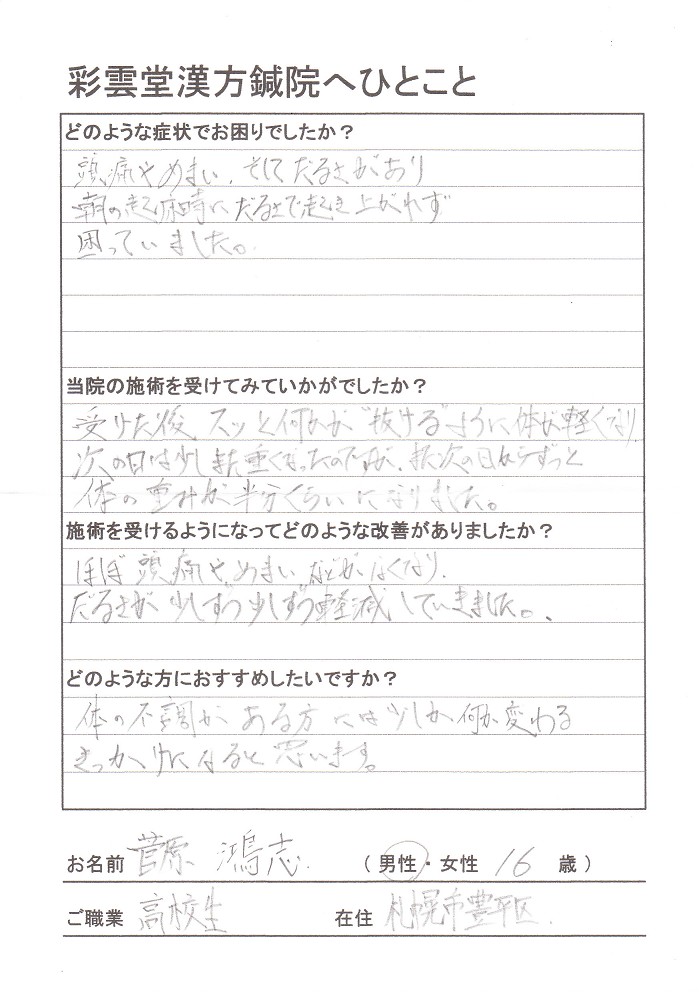 彩雲堂漢方鍼院へひとこと
どのような症状でお困りでしたか？
頭痛やめまい、そしてだるさがあり
朝の起床時にだるさで起き上がれず
困っていました。
当院の施術を受けてみていかがでしたか？
受けた後、スッと何かが"抜ける"ように体が軽くなり
次の日は少しまた重くなったのですが、また次の日からずっと
体の重みが半分くらいになりました。
施術を受けるようになってどのような改善がありましたか？
ほぼ頭痛や"めまい"などがなくなり、
だるさが少しずつ少しずつ軽減していきました。
どのような方におすすめしたいですか？
体の不調がある方には少しか何か変わる
きっかけになると思います。
お名前 菅原 鴻志 （ 男性・女性 16 歳 ）
ご職業 高校生 在住 札幌市豊平区